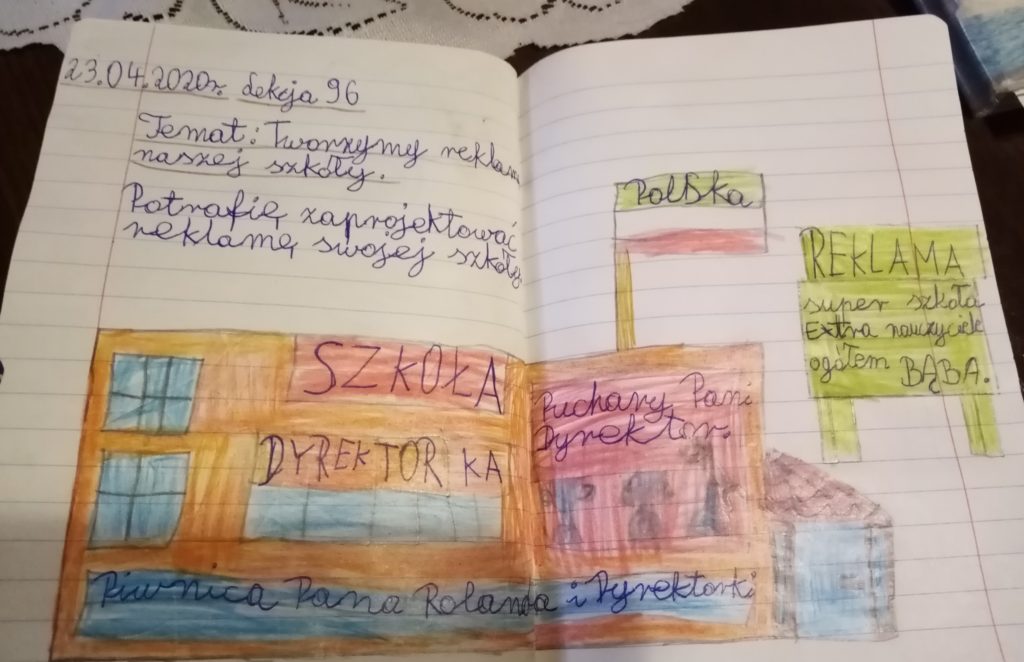 23.04.2020r. Lekcja 96
Temat: Tworzymy reklamę
naszej szkoły.
Potrafię zaprojektować
reklamę swojej szkoły.
PolSka
REKLAMA
super szkoła
Extra nauczyciele
ogółem BĄBA.
SZKOŁA
DYREKTOR KA
Puchary Pani
Dyrektor.
Piwnica Pana Rolanda i Dyrektorki